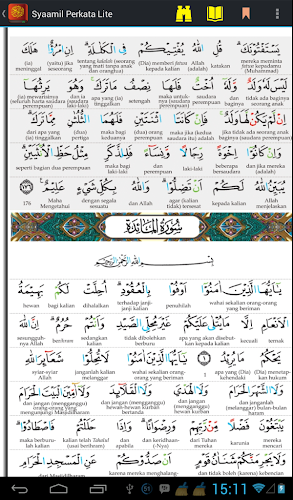 Syaamil Perkata Lite
يَسْتَفْتُونَكَ قُلِ اللَّهُ يُفْتِيكُمْ فِي الْكَلَالَةِ إِنِ امْرُؤٌا هَلَكَ
(ia) meninggal jika seseorang (yaitu) tentang kalalah (seorang yang mati tanpa anak dan orangtua) (Dia) memberi fatwa kepada kalian Allah katakan mereka meminta fatwa kepadamu (Muhammad)
لَيْسَ لَهُ وَلَدٌ وَلَهُ أُخْتٌ فَلَهَا نِصْفُ مَا تَرَكَ وَهُوَ يَرِثُهَا
(ia) mewarisinya (seluruh harta saudara perempuan) dan ia (saudara perempuan) apa yang (ia) tinggalkan setengah maka untuknya (saudara perempuan) saudara perempuan dan baginya tidak ada baginya seorang anak
إِن لَّمْ يَكُن لَّهَا وَلَدٌ فَإِن كَانَتَا اثْنَتَيْنِ فَلَهُمَا الثُّلُثَانِ مِمَّا تَرَكَ
dari apa yang (ia) tinggalkan dua pertiga maka bagi keduanya dua maka jika (kedua saudara itu) adalah jika tidak ada seorang anak baginya (saudara perempuan)
وَإِن كَانُوا إِخْوَةً رِّجَالًا وَنِسَاءً فَلِلذَّكَرِ مِثْلُ حَظِّ الْأُنثَيَيْنِ
seperti bagian dua perempuan maka bagi laki-laki dan perempuan laki-laki beberapa bersaudara dan jika (mereka) adalah
يُبَيِّنُ اللَّهُ لَكُمْ أَن تَضِلُّوا وَاللَّهُ بِكُلِّ شَيْءٍ عَلِيمٌ ١٧٦
176 Maha Mengetahui dengan segala sesuatu dan Allah agar (kalian tidak) tersesat kepada kalian Allah menjelaskan
سُورَةُ الْمَائِدَةِ
بِسْمِ اللَّهِ الرَّحْمَٰنِ الرَّحِيمِ
يَا أَيُّهَا الَّذِينَ آمَنُوا أَوْفُوا بِالْعُقُودِ أُحِلَّتْ لَكُم بَهِيمَةُ
hewan bagi kalian dihalalkan terhadap janji-janji penuhilah wahai sekalian orang-orang yang beriman
الْأَنْعَامِ إِلَّا مَا يُتْلَىٰ عَلَيْكُمْ غَيْرَ مُحِلِّي الصَّيْدِ وَأَنتُمْ حُرُمٌ إِنَّ اللَّهَ
sesungguhnya Allah (sedang) berihram dan kalian tidak dibolehkan berburu dibacakan kepada kalian kecuali ternak
يَحْكُمُ مَا يُرِيدُ ١ يَا أَيُّهَا الَّذِينَ آمَنُوا لَا تُحِلُّوا شَعَائِرَ اللَّهِ
syiar-syiar Allah janganlah kalian melanggar wahai sekalian orang-orang yang beriman 1 apa yang (Dia) kehendaki (Dia) menetapkan hukum
وَلَا الشَّهْرَ الْحَرَامَ وَلَا الْهَدْيَ وَلَا الْقَلَائِدَ وَلَا آمِّينَ الْبَيْتَ الْحَرَامَ
dan jangan (mengganggu) orang-orang yang mengunjungi Masjidilharam dan jangan (mengganggu) hewan-hewan kurban bertanda dan jangan (mengganggu) hewan-hewan kurban dan jangan (melanggar) bulan-bulan haram
يَبْتَغُونَ فَضْلًا مِّن رَّبِّهِمْ وَرِضْوَانًا وَإِذَا حَلَلْتُمْ فَاصْطَادُوا
maka berburulah kalian kalian telah tahalul (usai berihram) dan apabila dan keridhaan(-Nya) dari Tuhan mereka karunia mereka mencari
وَلَا يَجْرِمَنَّكُمْ شَنَآنُ قَوْمٍ أَن صَدُّوكُمْ عَنِ الْمَسْجِدِ الْحَرَامِ
dari Masjidilharam karena mereka menghalang- kebencian suatu kaum dan tidak boleh mendorong kalian
15:11